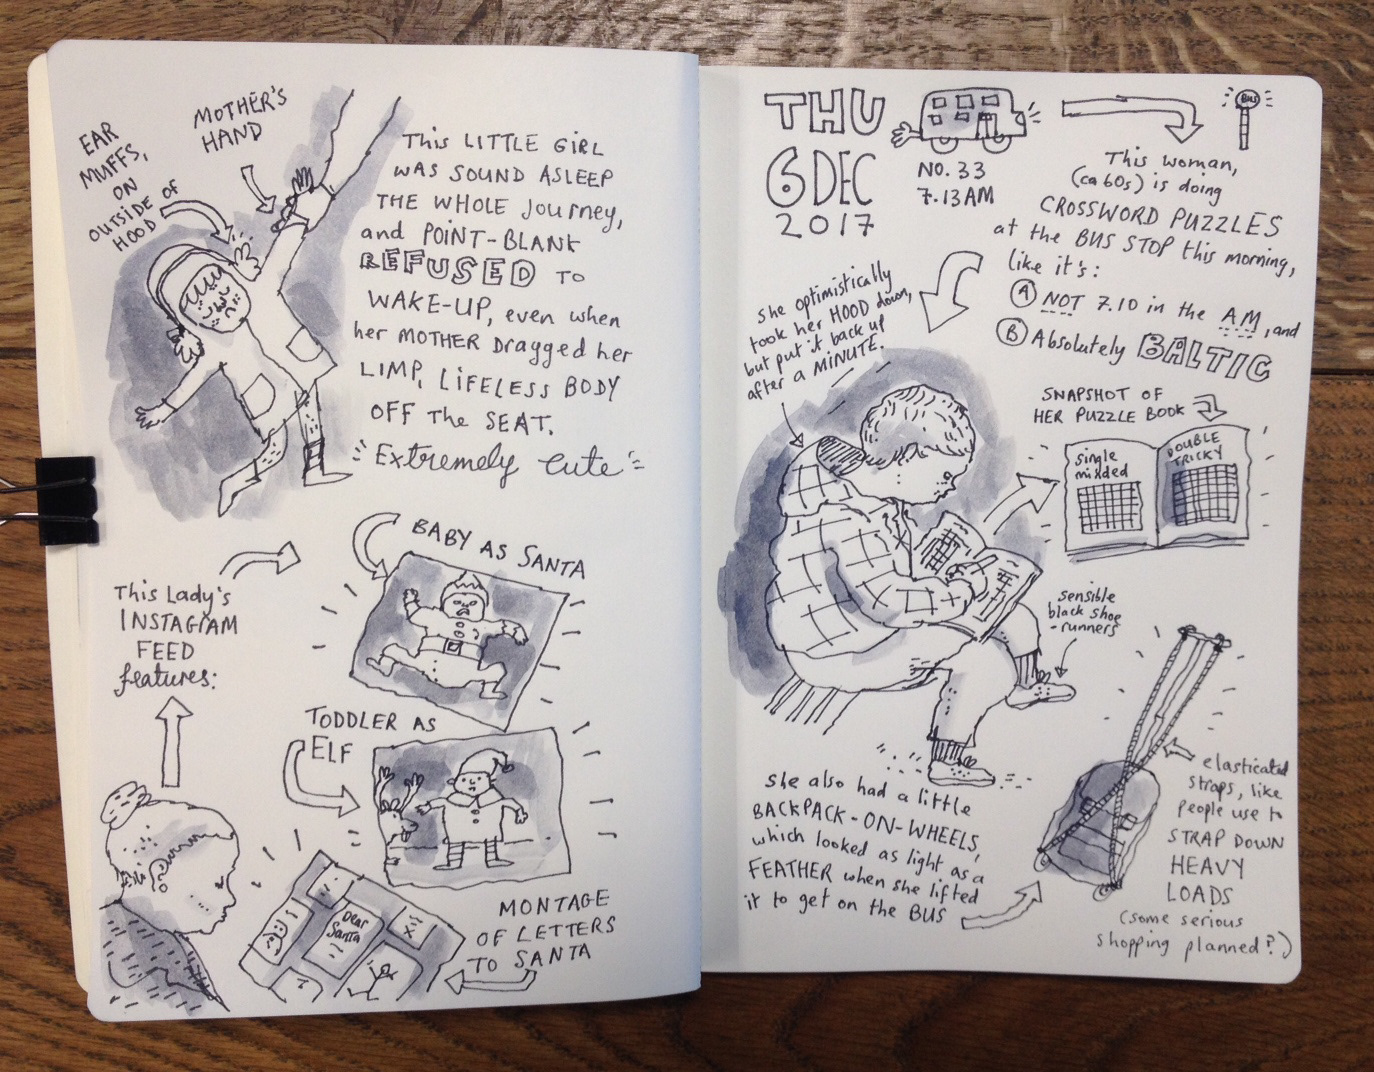 EAR
MUFFS,
ON
OUTSIDE OF
HOOD
MOTHER'S
HAND
This LITTLE GIRL
WAS SOUND ASLEEP
THE WHOLE Journey,
and POINT-BLANK
REFUSED TO
WAKE-UP, even when
her MOTHER Dragged her
LIMP, LIFELESS BODY
OFF the SEAT.
Extremely cute
This Lady's
INSTAGRAM
FEED
features:
BABY AS SANTA
TODDLER AS
ELF
Dear
Santa
MONTAGE
OF LETTERS
TO SANTA
THU
6 DEC
2017
NO. 33
7.13AM
BUS
This woman,
(ca 60s) is doing
CROSSWORD PUZZLES
at the BUS STOP this morning,
like it's:
A NOT 7.10 in the AM, and
B Absolutely BALTIC
she optimistically
took her HOOD down,
but put it back up
after a MINUTE.
SNAPSHOT OF
HER PUZZLE BOOK
single
minded
DOUBLE
TRICKY
sensible
black shoe
-runners
she also had a little
BACKPACK-ON-WHEELS,
which looked as light as a
FEATHER when she lifted
it to get on the BUS
elasticated
straps, like
people use to
STRAP DOWN
HEAVY
LOADS
(some serious
shopping planned?)